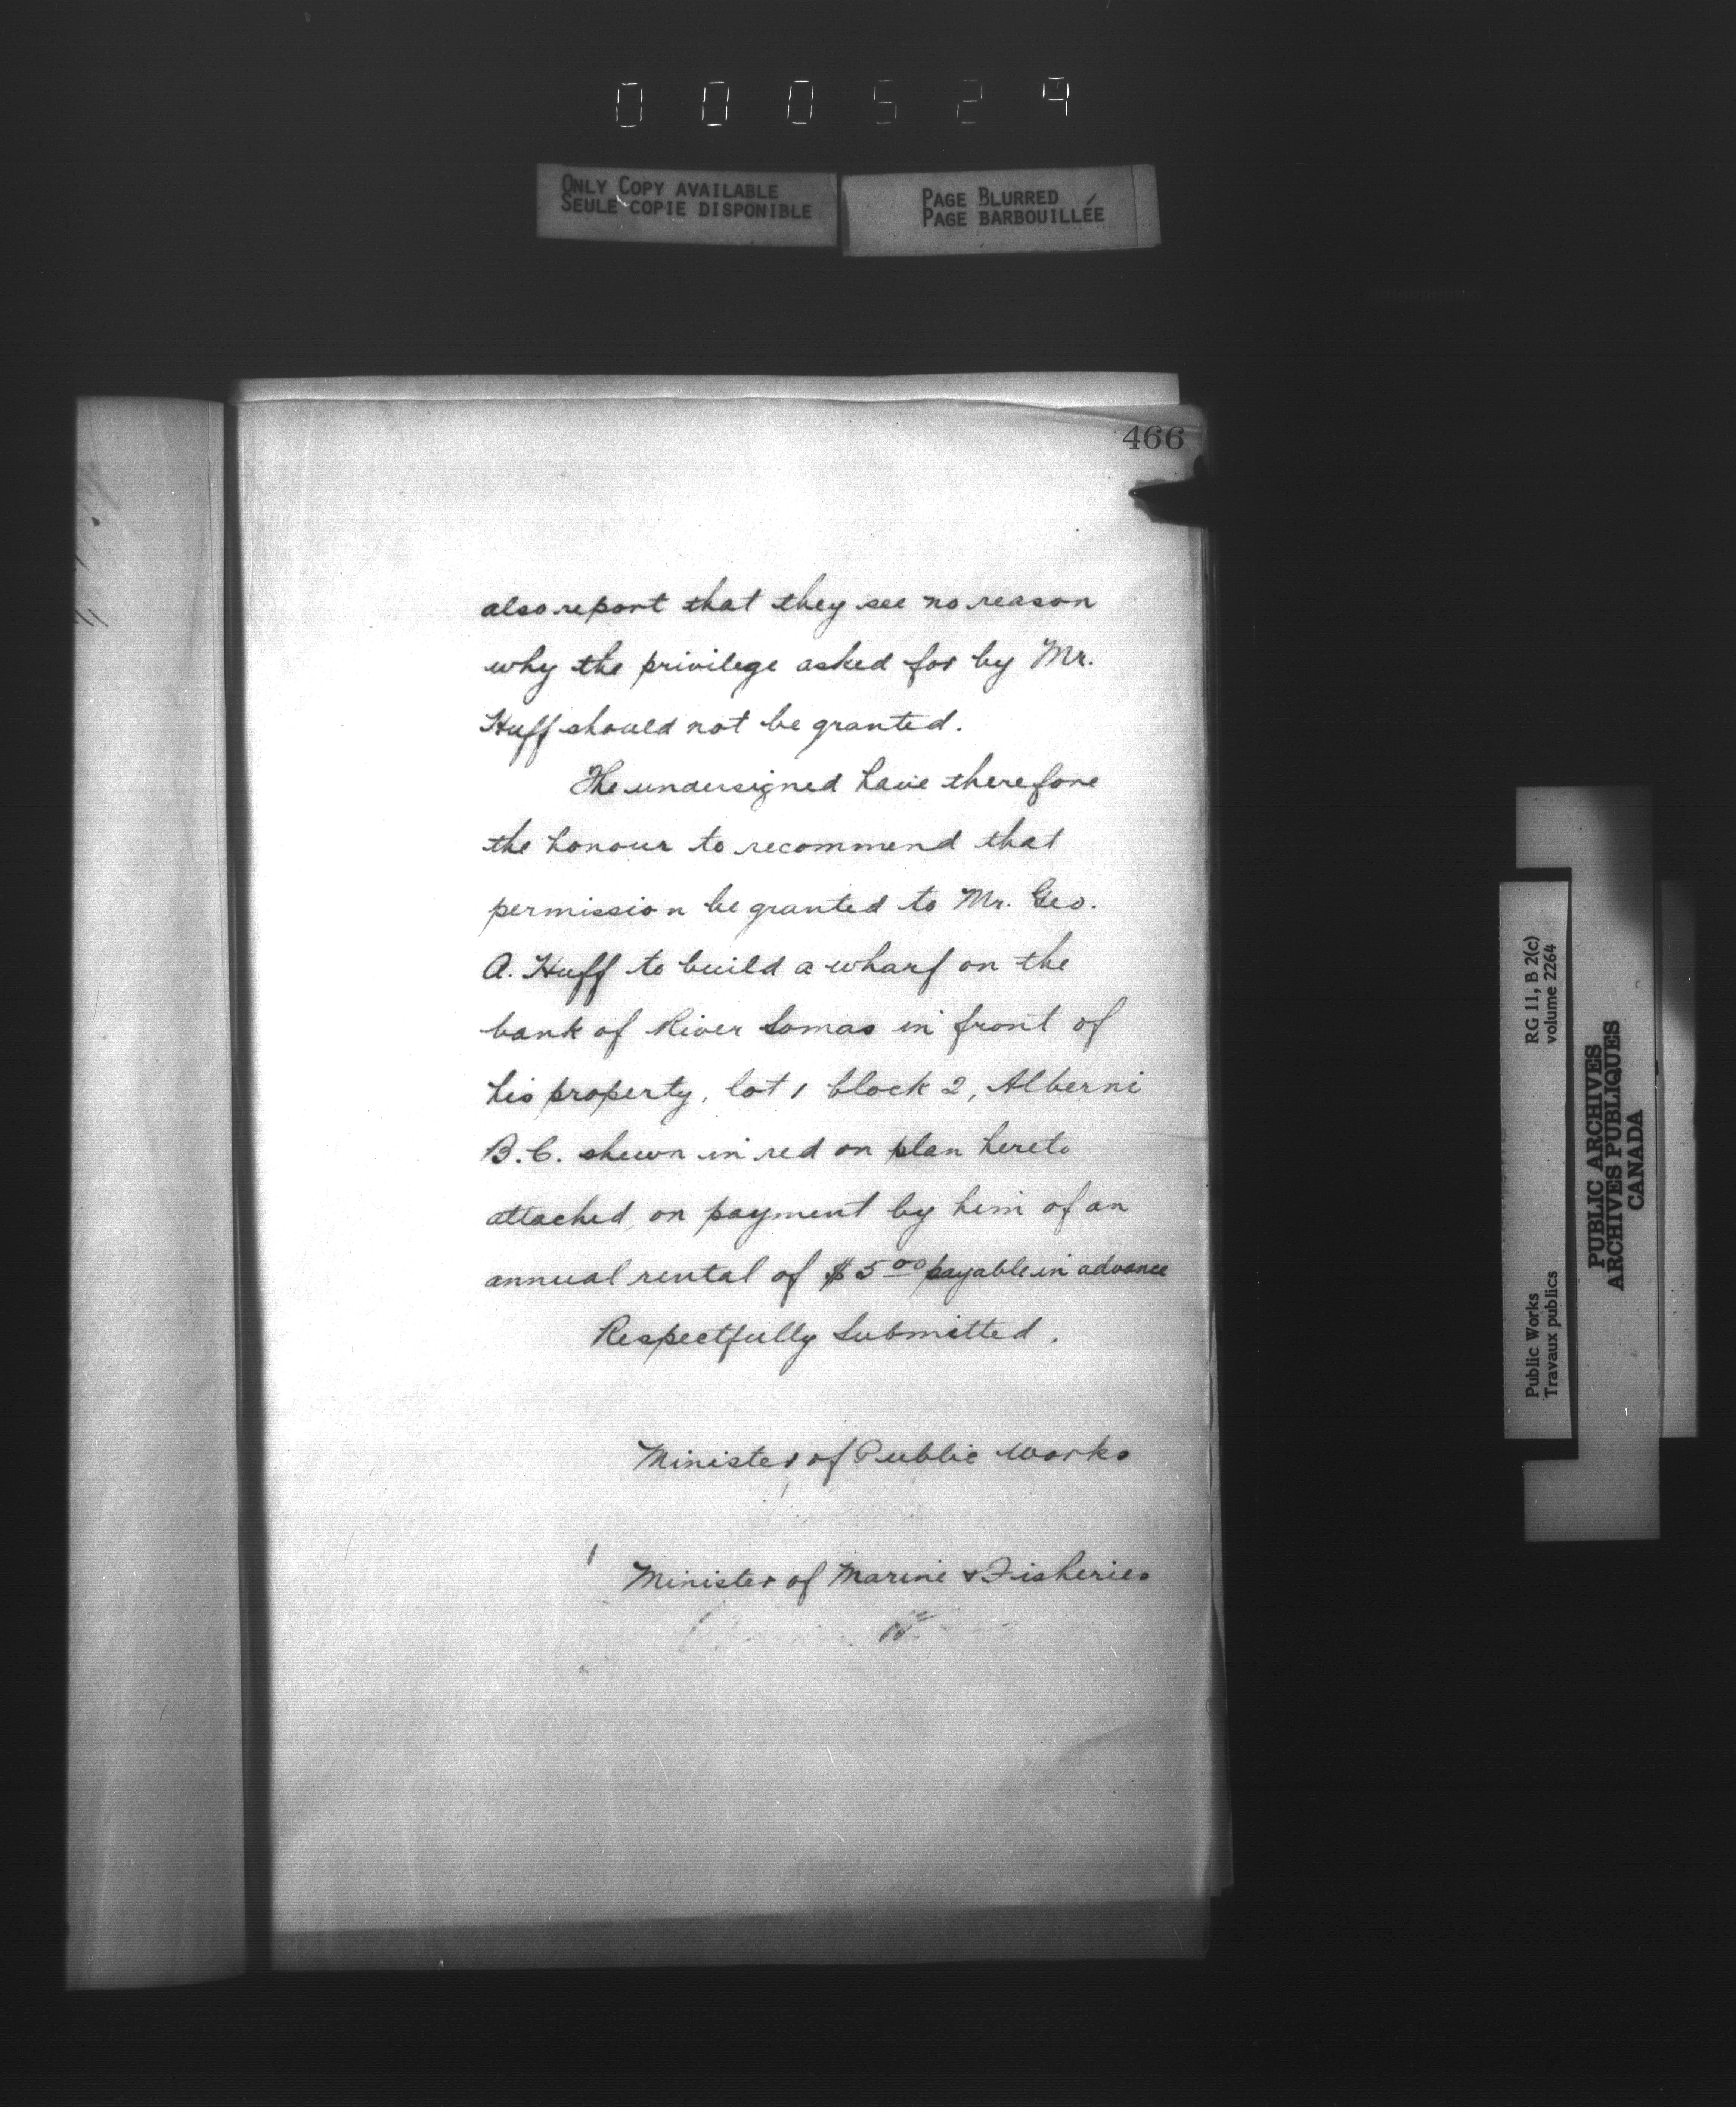 000529
ONLY COPY AVAILABLE
SEULE COPIE DISPONIBLE
PAGE BLURRED
PAGE BARBOUILLÉE
466
also report that they see no reason
why the privilege asked for by Mr.
Huff should not be granted.
The undersigned have therefore
the honour to recommend that
permission be granted to Mr. Geo.
A. Huff to build a wharf on the
bank of River Somas in front of
his property, lot 1 block 2, Alberni
B.C. shewn in red on plan hereto
attached, on payment by him of an
annual rental of $5.00 payable in advance
Respectfully Submitted.
Minister of Public Works
Minister of Marine & Fisheries
Public Works
Travaux publics
RG 11, B 2(c)
volume 2264
PUBLIC ARCHIVES
ARCHIVES PUBLIQUES
CANADA